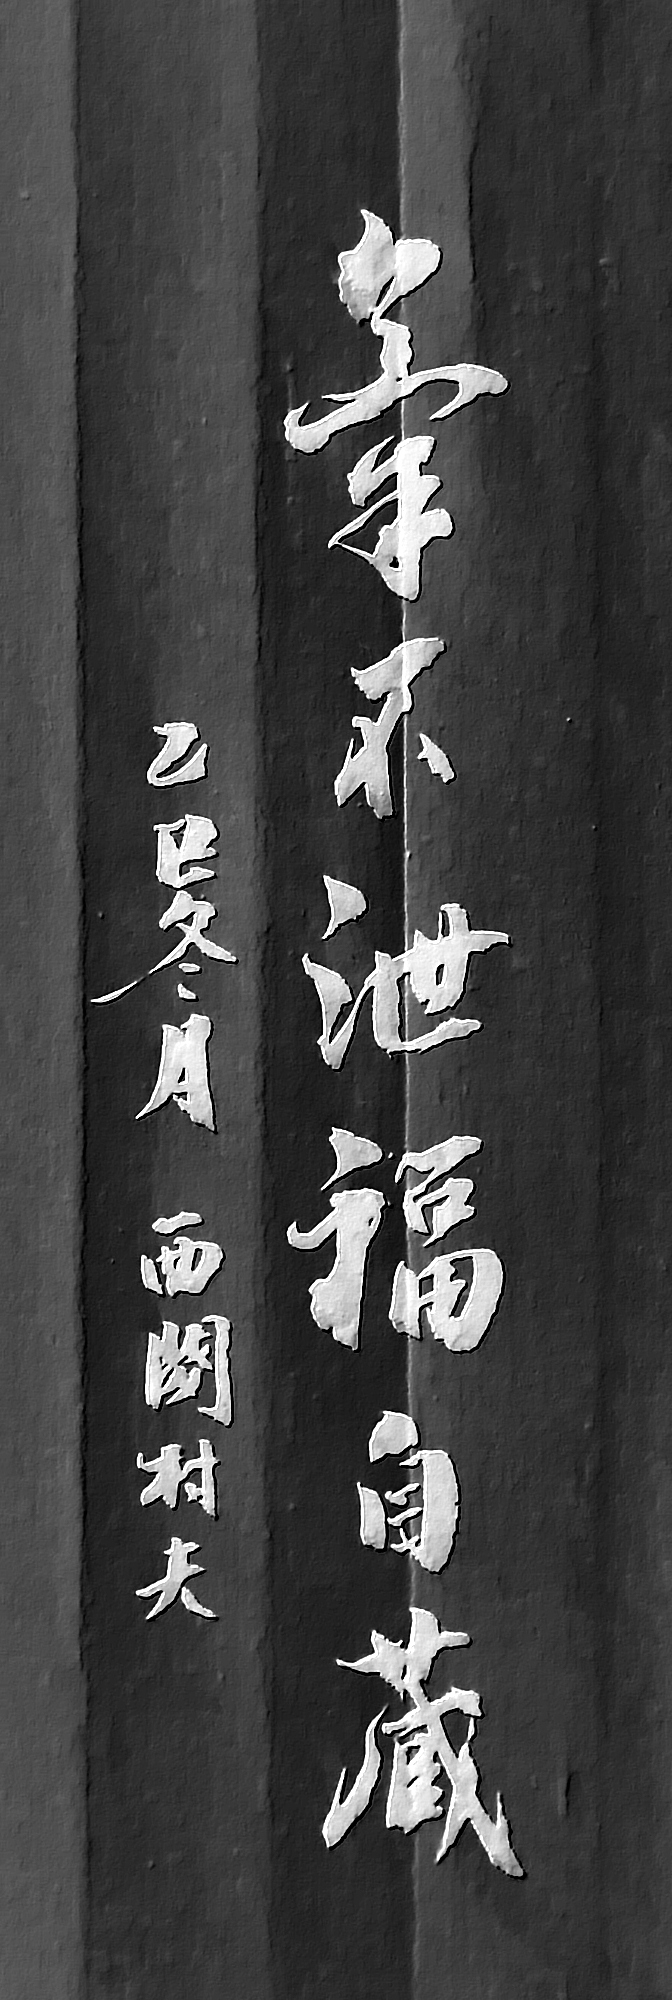 口牢不泄福自藏
乙巳冬月 西關村夫